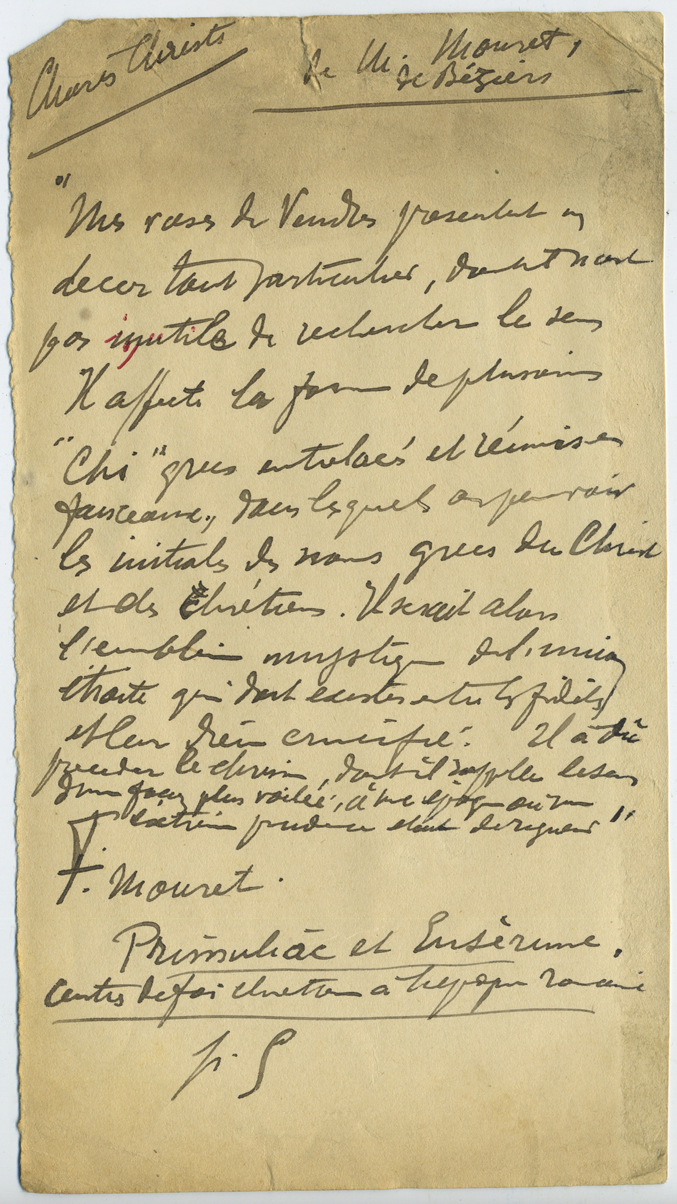 Chares Christs
de M. Mouret,
de Béziers
"Mes vases de Vendres présentent un
decor tout particulier, dont il n'est
pas inutile de rechercher le sens
Il affecte la forme de plusieurs
"Chi" grecs entrelacés et réunis en
faisceaux, dans lesquels on peut voir
les initiales des noms grecs du Christ
et des Chrétiens. Il serait alors
l'emblème mystique de l'union
étroite qui doit exister entre les fidèles
et leur Dieu crucifié. Il a dû
précéder le chrisme, dont il rappelle le sens
d'une façon plus voilée, à une époque où une
extrême prudence etait de rigueur"
F. Mouret.
Primuliac et Ensérune,
centres de foi chretienne à l'epoque romaine
p. 9